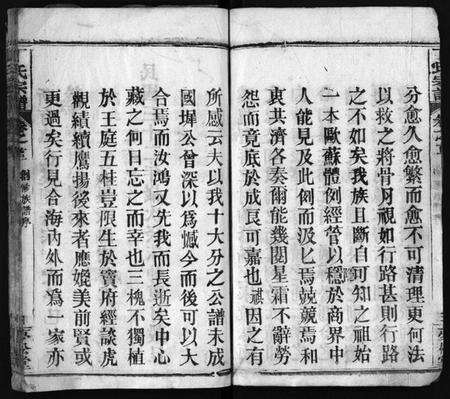 分愈久愈繁而愈不可清理更何法
以救之將骨月視如行路甚則行路
之不如矣我族且斷自可知之祖始
一本歐蘇體例經管以穩於商界中
人能見及此例而汲匕焉兢兢焉和
衷共濟各奏爾能幾閱星霜不辭勞
怨而竟底於成良可嘉也頑因之有
所感云夫以我十大分之公譜未成
國墀公曾深以爲憾今而後可以大
合焉而汝鴻又先我而長逝矣中心
藏之何日忘之而幸也三槐不獨植
於王庭五桂豈限生於竇府經談虎
觀績續鷹揚後來者應媲美前賢或
更過矣行見合海內外而爲一家亦
氏宗譜
卷之首